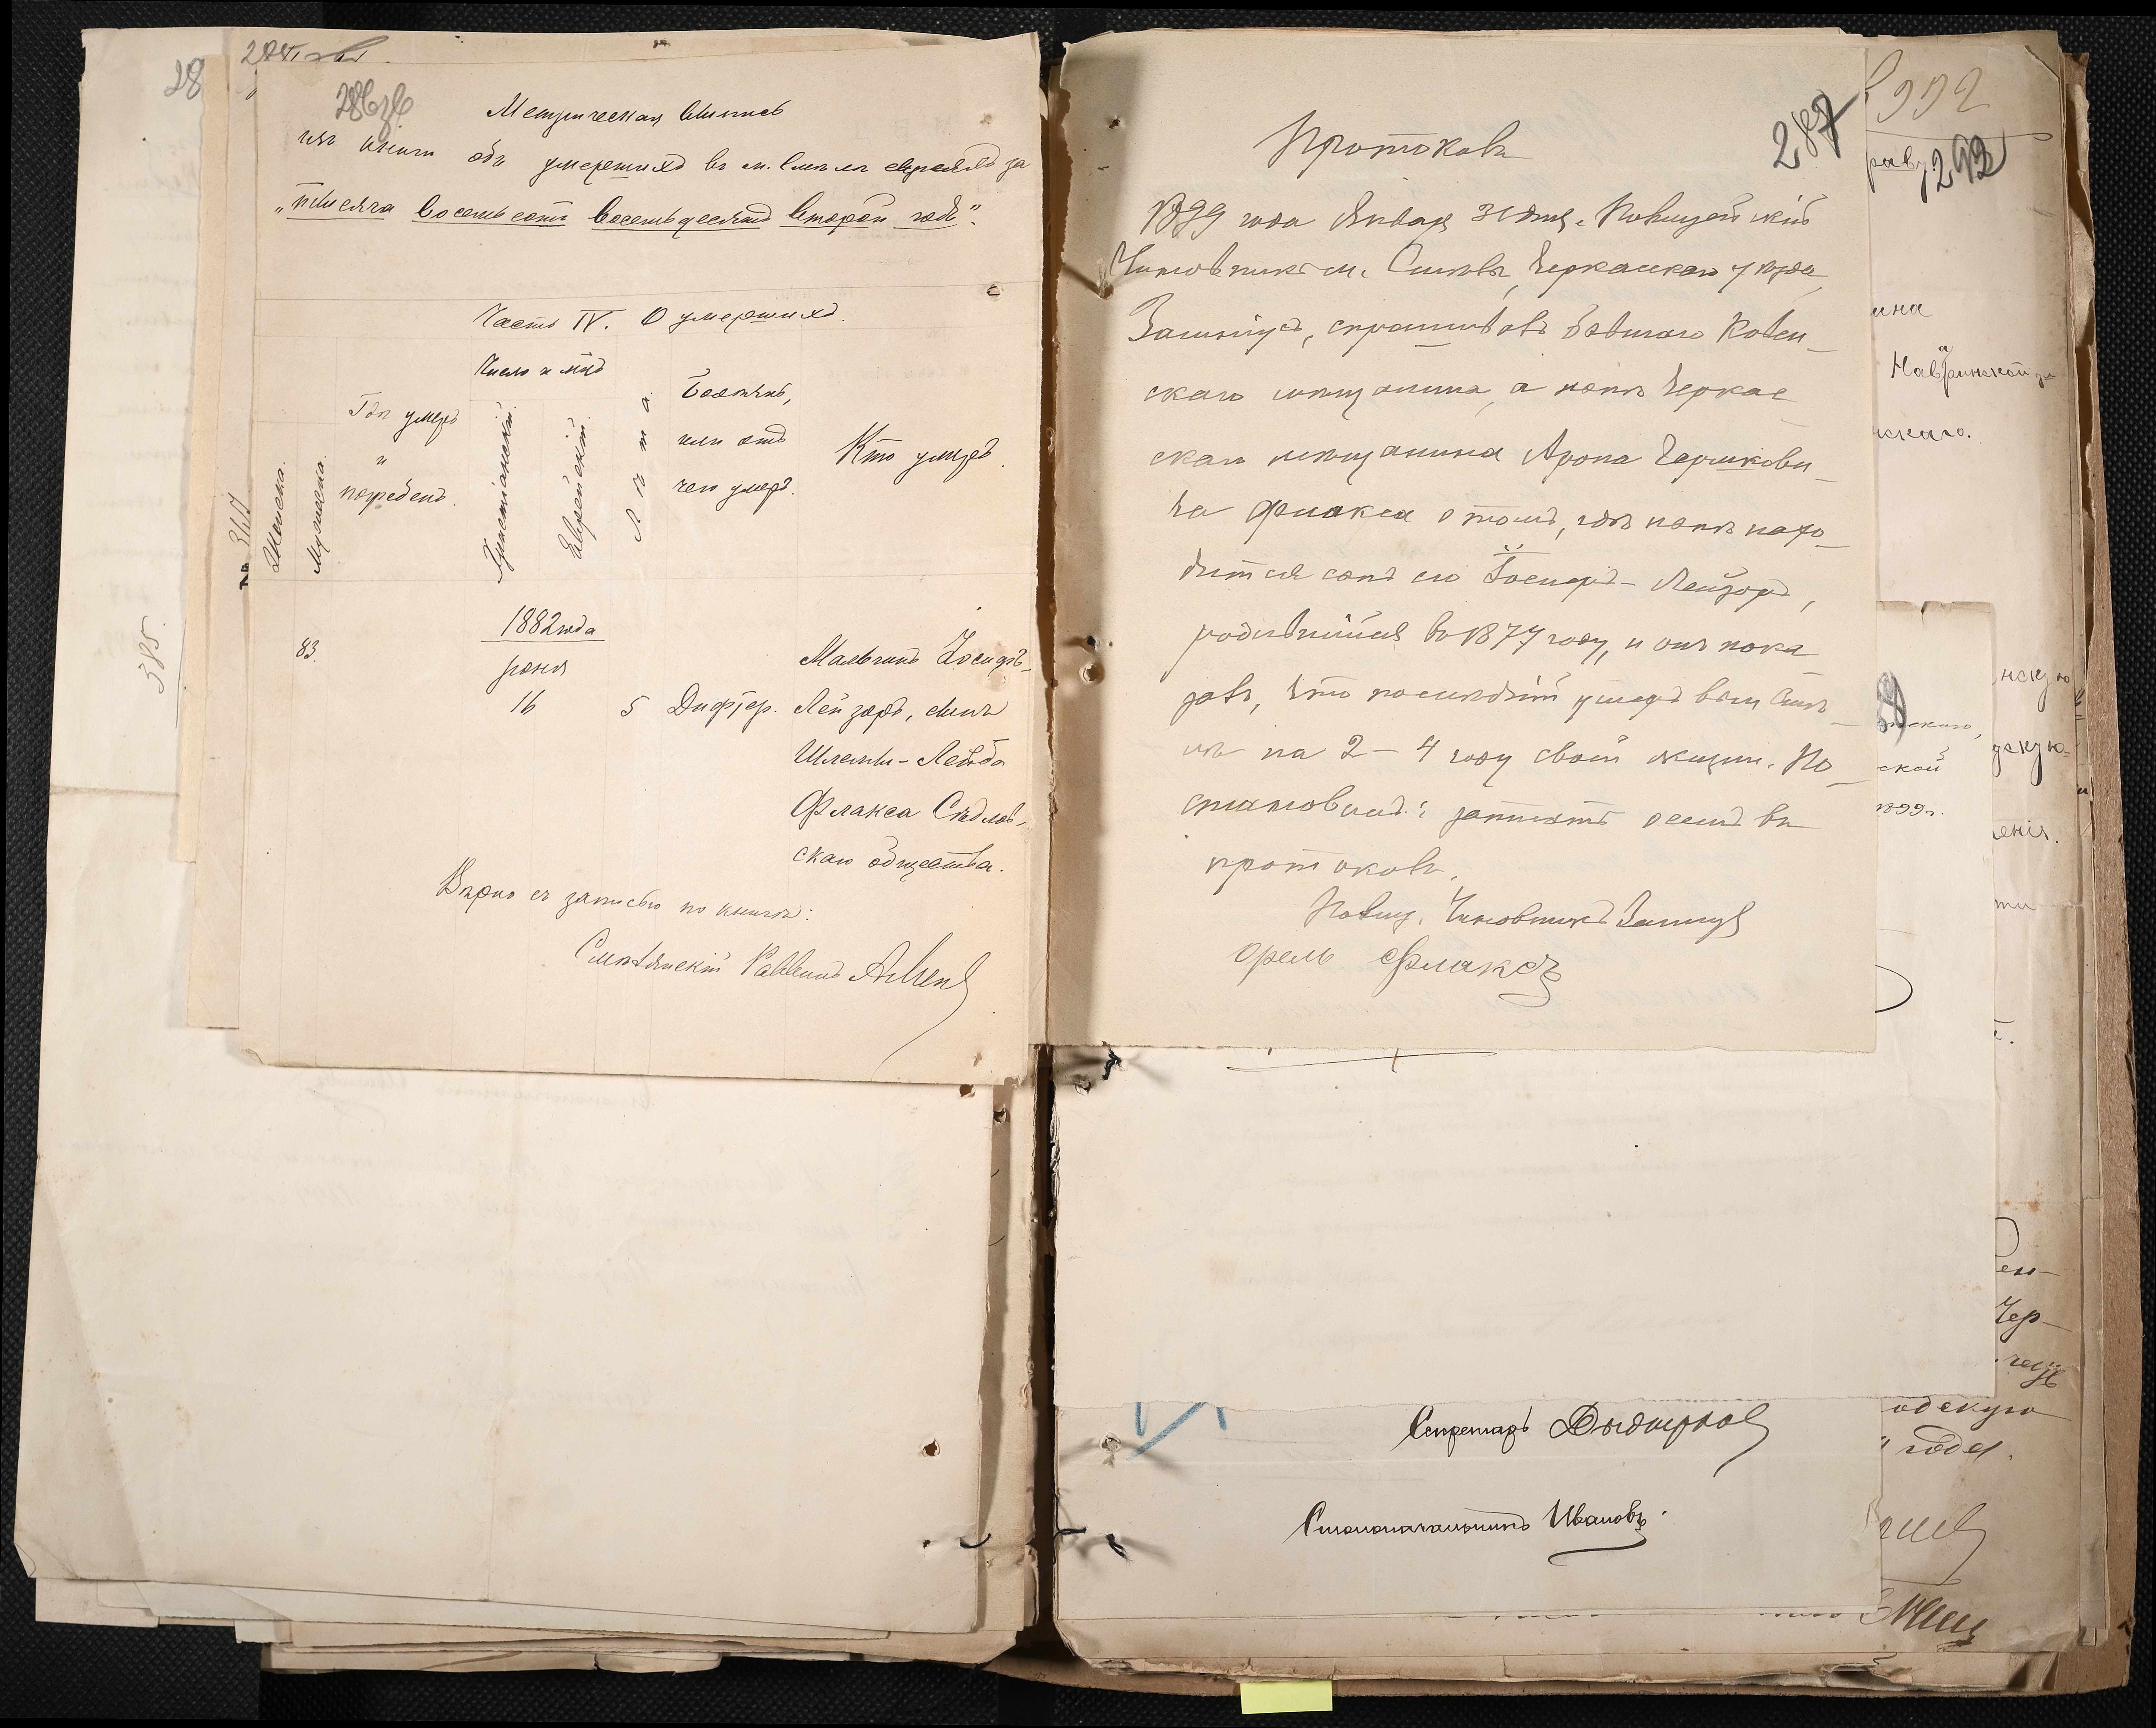 286
Метрическая выпись
изъ книги объ умершихъ въ м. Смела евреяхъ за
„тысяча восемьсотъ восемьдесятъ второй годъ".
Часть IV. О умершихъ.
Женска.
Мужеска.
Гдѣ умеръ
и
погребенъ.
Число и мѣс.
Христіанскій.
Еврейскій.
Лѣта.
Болѣзнь,
или отъ
чего умеръ.
Кто умеръ.
1882 года
83.
Іюня
16
5
Дифтер.
Мальчикъ Іосифъ-
Лейзоръ, сынъ
Шлемы-Лейба
Флакса Сѣдлов-
скаго общества.
Вѣрно съ записью по книгѣ:
Смѣлянскій Раввинъ
385.
287
Протоколъ
1899 года Января 31 дня. Полицейскій
Чиновникъ м. Смѣлы, Черкасскаго уѣзда,
спросивъ бывшаго Ковен-
скаго мѣщанина, а нынѣ Черкас-
скаго мѣщанина Арона Гершкови-
ча Флакса о томъ, гдѣ нынѣ нахо-
дится сынъ его Іосифъ-Лейзоръ,
родившійся въ 1877 году, и онъ пока-
залъ, что послѣдній умеръ въ м. Смѣ-
лѣ на 2-4 году своей жизни. По-
становилъ: записать о семъ въ
протоколъ.
Полиц. Чиновникъ
Орель Флаксъ
Секретарь
Столоначальникъ Ивановъ
992
293
ина
нскаго.
нскую
ской
1899 г.
енія.
ен-
Чер-
одскую
года.